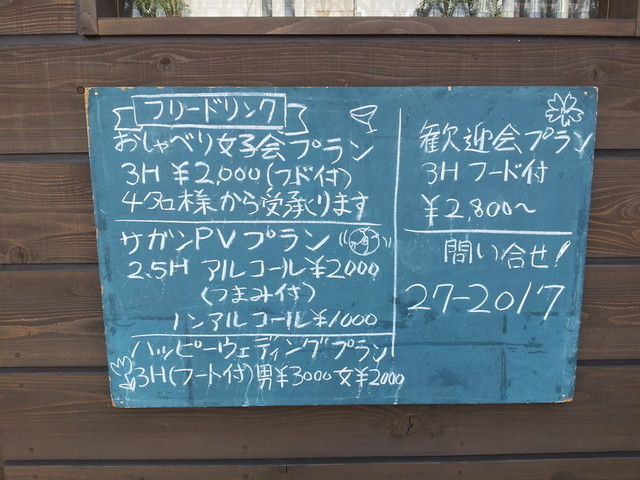 フリードリンク
おしゃべり女子会プラン
3H ¥2,000(フード付)
4名様から受承ります
サガンPVプラン
2.5H アルコール¥2000
(つまみ付)
ノンアルコール¥1000
ハッピーウェディングプラン
3H(フート付)男¥3000女¥2000
歓迎会プラン
3H フード付
¥2,800~
問い合せ!
27-2017